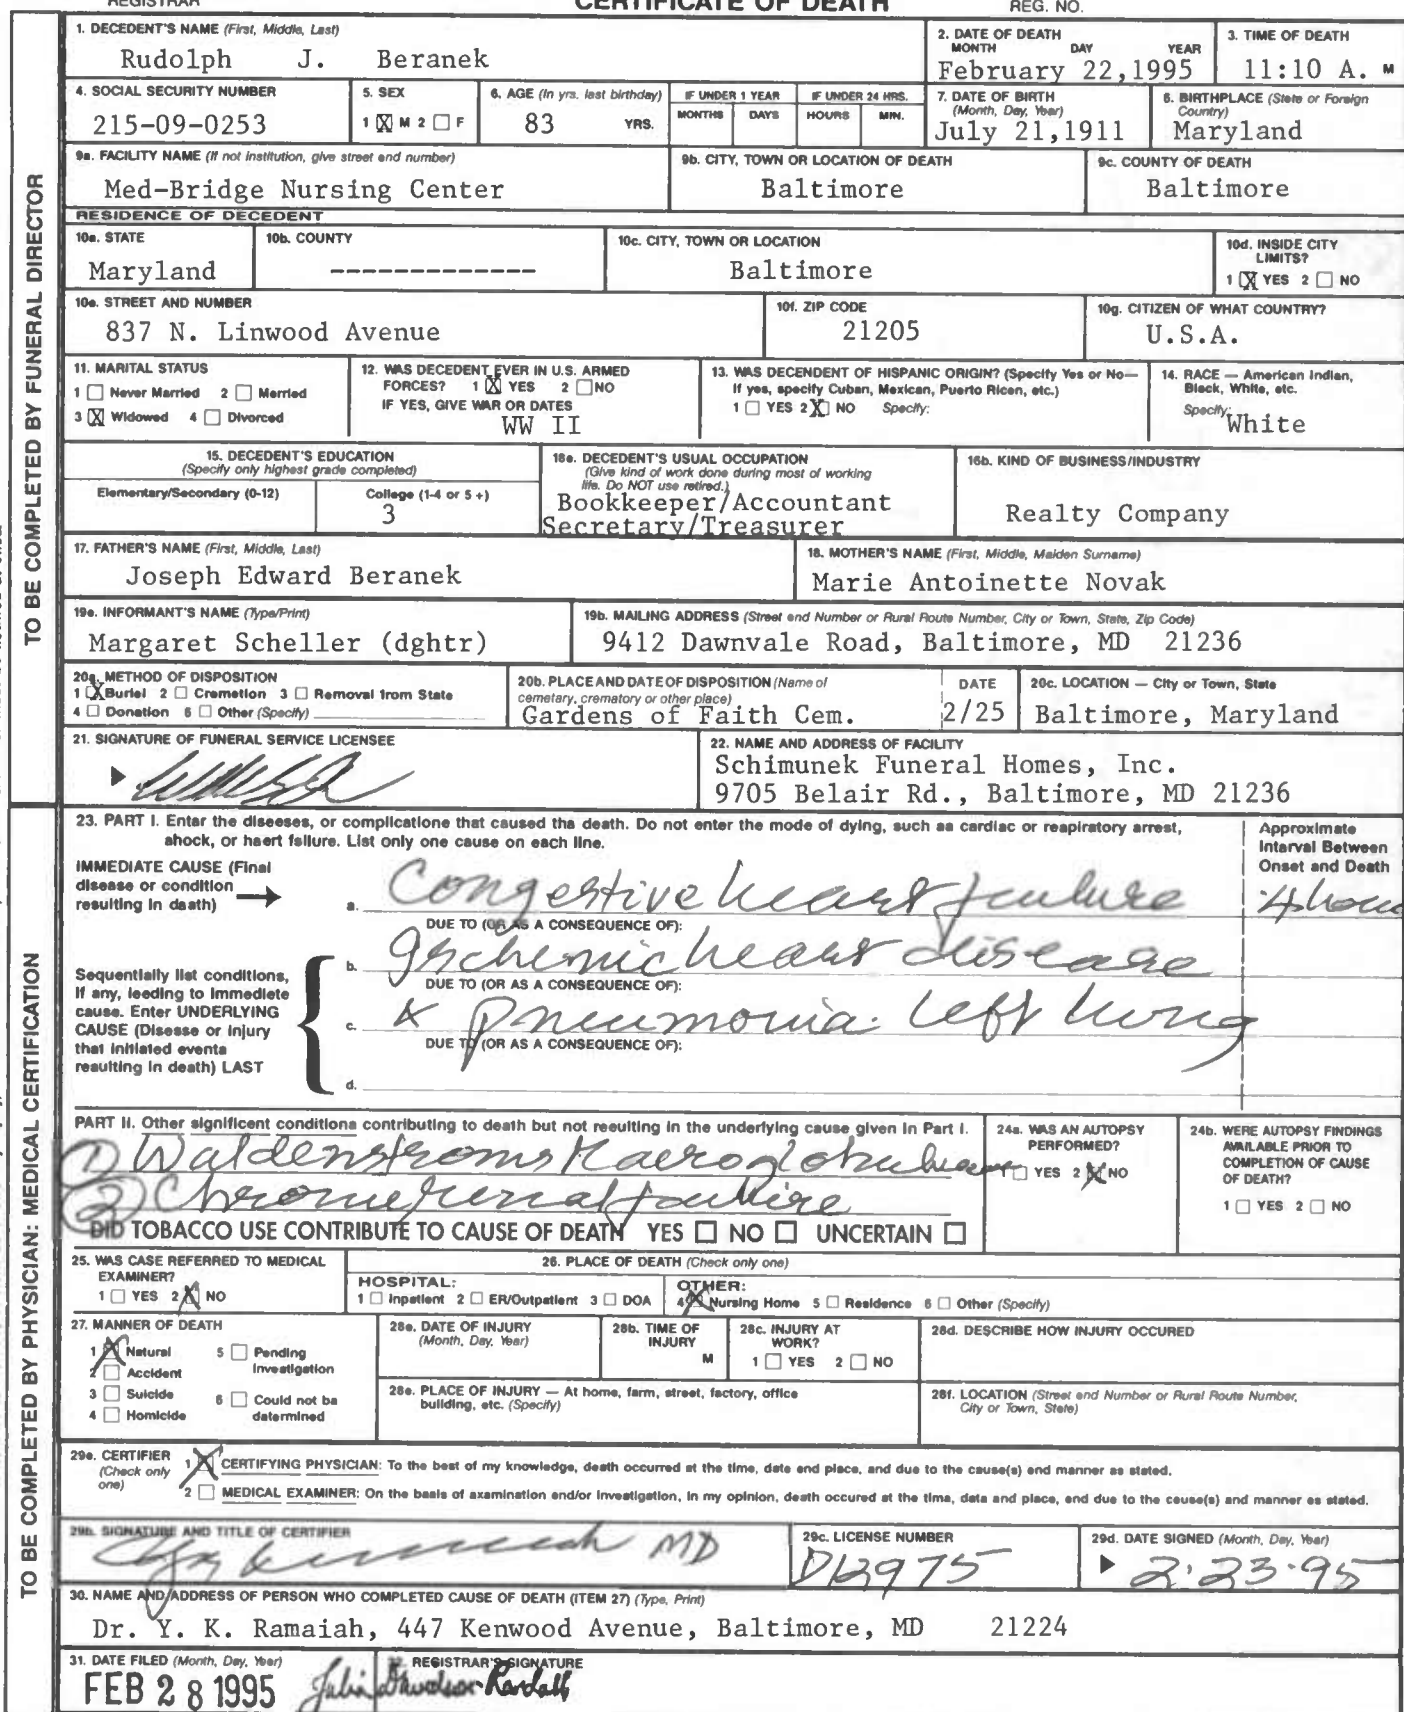 REGISTRAR
CERTIFICATE OF DEATH
REG. NO.
TO BE COMPLETED BY FUNERAL DIRECTOR
1. DECEDENT'S NAME (First, Middle, Last)
Rudolph J. Beranek
2. DATE OF DEATH
MONTH DAY YEAR
February 22,1995
3. TIME OF DEATH
11:10 A. M
4. SOCIAL SECURITY NUMBER
215-09-0253
5. SEX
1 ☒ M 2 ☐ F
6. AGE (In yrs. last birthday)
83 YRS.
IF UNDER 1 YEAR
MONTHS DAYS
IF UNDER 24 HRS.
HOURS MIN.
7. DATE OF BIRTH
(Month, Day, Year)
July 21,1911
8. BIRTHPLACE (State or Foreign
Country)
Maryland
9a. FACILITY NAME (If not institution, give street and number)
Med-Bridge Nursing Center
9b. CITY, TOWN OR LOCATION OF DEATH
Baltimore
9c. COUNTY OF DEATH
Baltimore
RESIDENCE OF DECEDENT
10a. STATE
Maryland
10b. COUNTY
-------------
10c. CITY, TOWN OR LOCATION
Baltimore
10d. INSIDE CITY
LIMITS?
1 ☒ YES 2 ☐ NO
10e. STREET AND NUMBER
837 N. Linwood Avenue
10f. ZIP CODE
21205
10g. CITIZEN OF WHAT COUNTRY?
U.S.A.
11. MARITAL STATUS
1 ☐ Never Married 2 ☐ Married
3 ☒ Widowed 4 ☐ Divorced
12. WAS DECEDENT EVER IN U.S. ARMED
FORCES? 1 ☒ YES 2 ☐ NO
IF YES, GIVE WAR OR DATES
WW II
13. WAS DECENDENT OF HISPANIC ORIGIN? (Specify Yes or No—
If yes, specify Cuban, Mexican, Puerto Rican, etc.)
1 ☐ YES 2 ☒ NO Specify:
14. RACE — American Indian,
Black, White, etc.
Specify:
White
15. DECEDENT'S EDUCATION
(Specify only highest grade completed)
Elementary/Secondary (0-12)
College (1-4 or 5+)
3
16a. DECEDENT'S USUAL OCCUPATION
(Give kind of work done during most of working
life. Do NOT use retired.)
Bookkeeper/Accountant
Secretary/Treasurer
16b. KIND OF BUSINESS/INDUSTRY
Realty Company
17. FATHER'S NAME (First, Middle, Last)
Joseph Edward Beranek
18. MOTHER'S NAME (First, Middle, Maiden Surname)
Marie Antoinette Novak
19a. INFORMANT'S NAME (Type/Print)
Margaret Scheller (dghtr)
19b. MAILING ADDRESS (Street and Number or Rural Route Number, City or Town, State, Zip Code)
9412 Dawnvale Road, Baltimore, MD 21236
20a. METHOD OF DISPOSITION
1 ☒ Burial 2 ☐ Cremation 3 ☐ Removal from State
4 ☐ Donation 5 ☐ Other (Specify)
20b. PLACE AND DATE OF DISPOSITION (Name of
cemetary, crematory or other place)
Gardens of Faith Cem.
DATE
2/25
20c. LOCATION — City or Town, State
Baltimore, Maryland
21. SIGNATURE OF FUNERAL SERVICE LICENSEE
22. NAME AND ADDRESS OF FACILITY
Schimunek Funeral Homes, Inc.
9705 Belair Rd., Baltimore, MD 21236
TO BE COMPLETED BY PHYSICIAN: MEDICAL CERTIFICATION
23. PART I. Enter the diseases, or complications that caused the death. Do not enter the mode of dying, such as cardiac or respiratory arrest,
shock, or heart failure. List only one cause on each line.
Approximate
Interval Between
Onset and Death
IMMEDIATE CAUSE (Final
disease or condition
resulting in death)
a. Congestive heart failure
DUE TO (OR AS A CONSEQUENCE OF):
Sequentially list conditions,
if any, leading to immediate
cause. Enter UNDERLYING
CAUSE (Disease or injury
that initiated events
resulting in death) LAST
b. Ischemic heart disease
DUE TO (OR AS A CONSEQUENCE OF):
c. & pneumonia. left lung
DUE TO (OR AS A CONSEQUENCE OF):
d.
PART II. Other significant conditions contributing to death but not resulting in the underlying cause given in Part I.
1) Waldenstroms
2) Chronic renal failure
DID TOBACCO USE CONTRIBUTE TO CAUSE OF DEATH YES ☐ NO ☐ UNCERTAIN ☐
24a. WAS AN AUTOPSY
PERFORMED?
1 ☐ YES 2 ☒ NO
24b. WERE AUTOPSY FINDINGS
AVAILABLE PRIOR TO
COMPLETION OF CAUSE
OF DEATH?
1 ☐ YES 2 ☐ NO
25. WAS CASE REFERRED TO MEDICAL
EXAMINER?
1 ☐ YES 2 ☒ NO
26. PLACE OF DEATH (Check only one)
HOSPITAL:
1 ☐ Inpatient 2 ☐ ER/Outpatient 3 ☐ DOA
OTHER:
4 ☒ Nursing Home 5 ☐ Residence 6 ☐ Other (Specify)
27. MANNER OF DEATH
1 ☒ Natural 5 ☐ Pending
Investigation
2 ☐ Accident
3 ☐ Suicide 6 ☐ Could not be
determined
4 ☐ Homicide
28a. DATE OF INJURY
(Month, Day, Year)
28b. TIME OF
INJURY
M
28c. INJURY AT
WORK?
1 ☐ YES 2 ☐ NO
28d. DESCRIBE HOW INJURY OCCURED
28e. PLACE OF INJURY — At home, farm, street, factory, office
building, etc. (Specify)
28f. LOCATION (Street and Number or Rural Route Number,
City or Town, State)
29a. CERTIFIER
(Check only
one)
1 ☒ CERTIFYING PHYSICIAN: To the best of my knowledge, death occurred at the time, date and place, and due to the cause(s) and manner as stated.
2 ☐ MEDICAL EXAMINER: On the basis of examination and/or investigation, in my opinion, death occured at the time, date and place, and due to the cause(s) and manner as stated.
29b. SIGNATURE AND TITLE OF CERTIFIER
MD
29c. LICENSE NUMBER
D12975
29d. DATE SIGNED (Month, Day, Year)
2·23·95
30. NAME AND/ADDRESS OF PERSON WHO COMPLETED CAUSE OF DEATH (ITEM 27) (Type, Print)
Dr. Y. K. Ramaiah, 447 Kenwood Avenue, Baltimore, MD 21224
31. DATE FILED (Month, Day, Year)
FEB 28 1995
REGISTRAR'S SIGNATURE
Julia Davidson-Randall